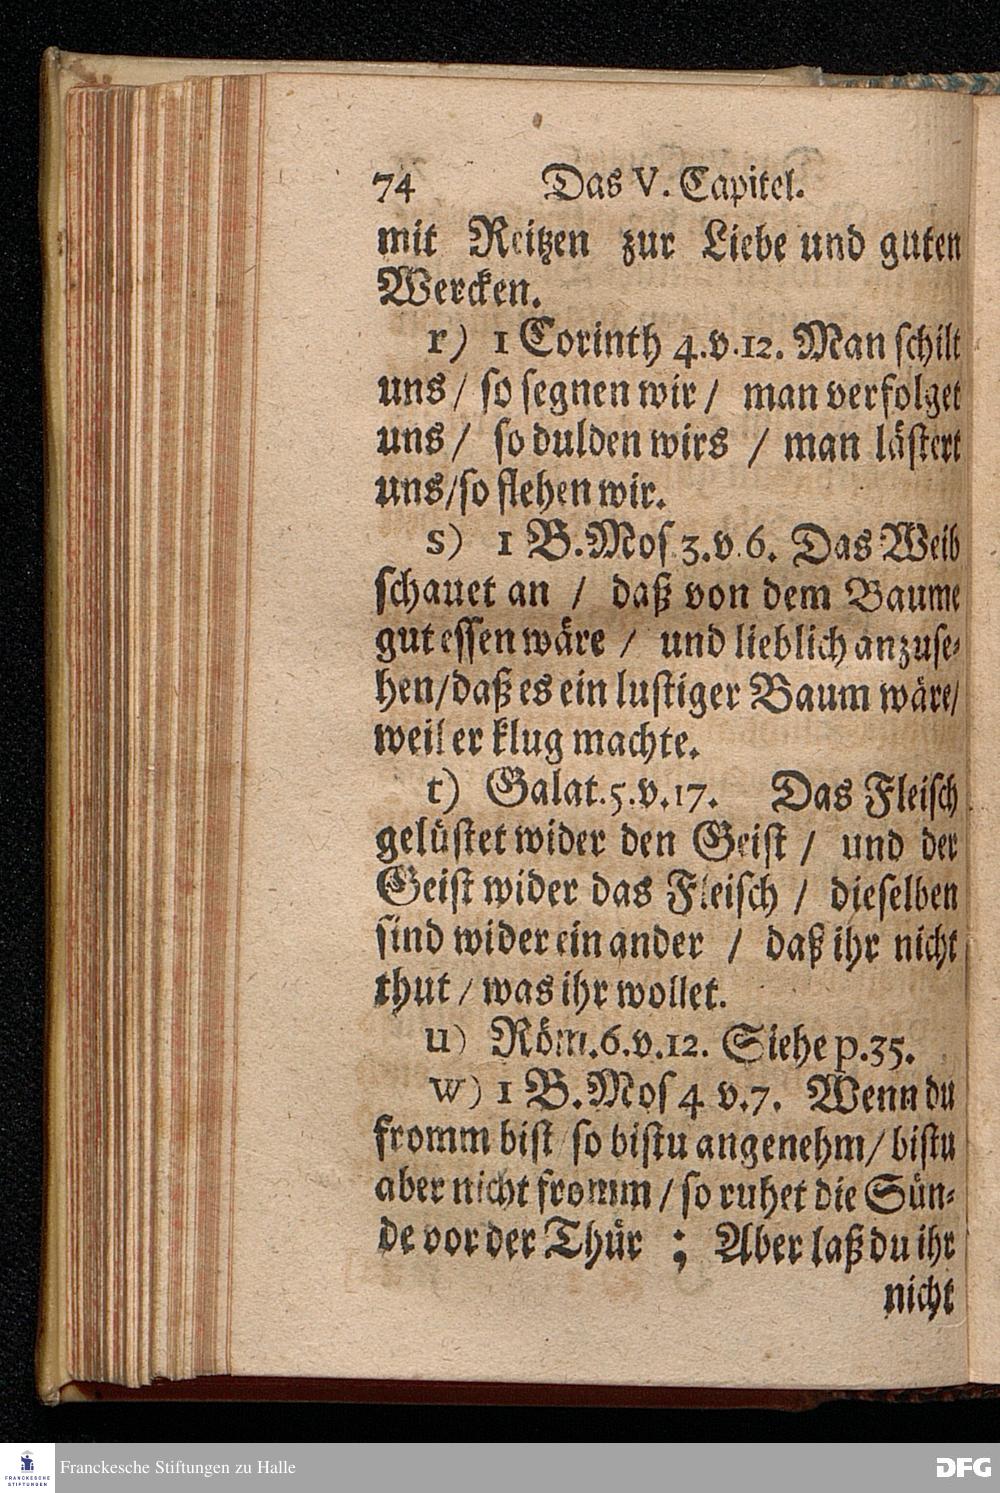 74 Das V. Capitel.
mit Reitzen zur Liebe und guten
Wercken.
r) 1 Corinth 4.v.12. Man schilt
uns / so segnen wir / man verfolget
uns / so dulden wirs / man lästert
uns/so flehen wir.
s) 1 B.Mos 3.v.6. Das Weib
schauet an / daß von dem Baume
gut essen wäre / und lieblich anzuse-
hen/daß es ein lustiger Baum wäre/
weil er klug machte.
t) Galat.5.v.17. Das Fleisch
gelüstet wider den Geist / und der
Geist wider das Fleisch / dieselben
sind wider einander / daß ihr nicht
thut / was ihr wollet.
u) Röm.6.v.12. Siehe p.35.
w) 1 B.Mos 4 v.7. Wenn du
fromm bist / so bistu angenehm/ bistu
aber nicht fromm / so ruhet die Sün-
de vor der Thür ; Aber laß du ihr
nicht
FRANCKESCHE
STIFTUNGEN
Franckesche Stiftungen zu Halle
DFG